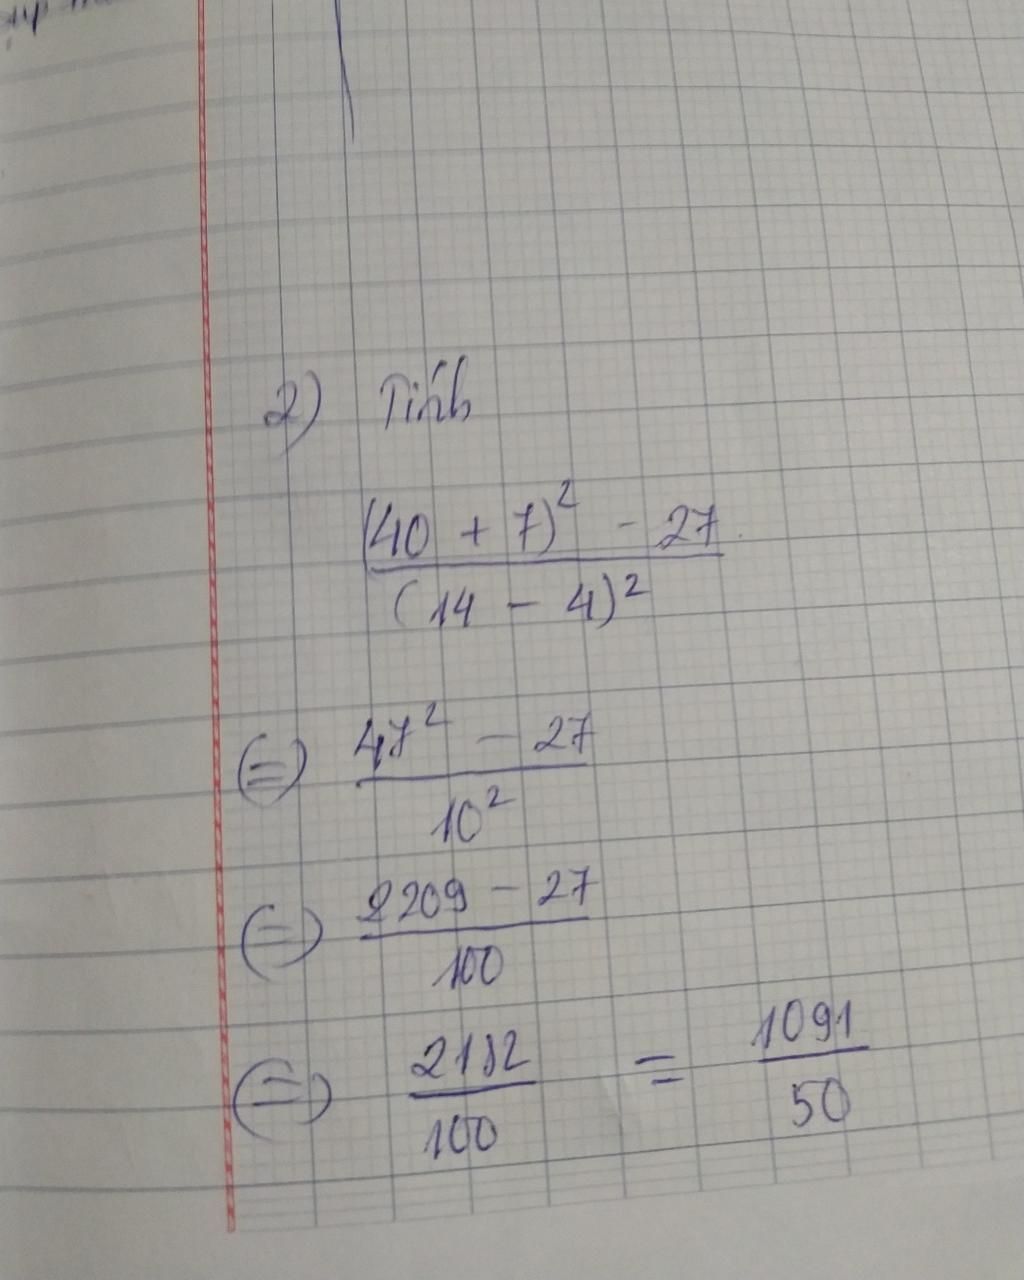 2) Tính
(40 + 7)² - 27
(14 - 4)²
(=) 47² - 27
10²
(=) 2209 - 27
100
(=) 2182 = 1091
100 50